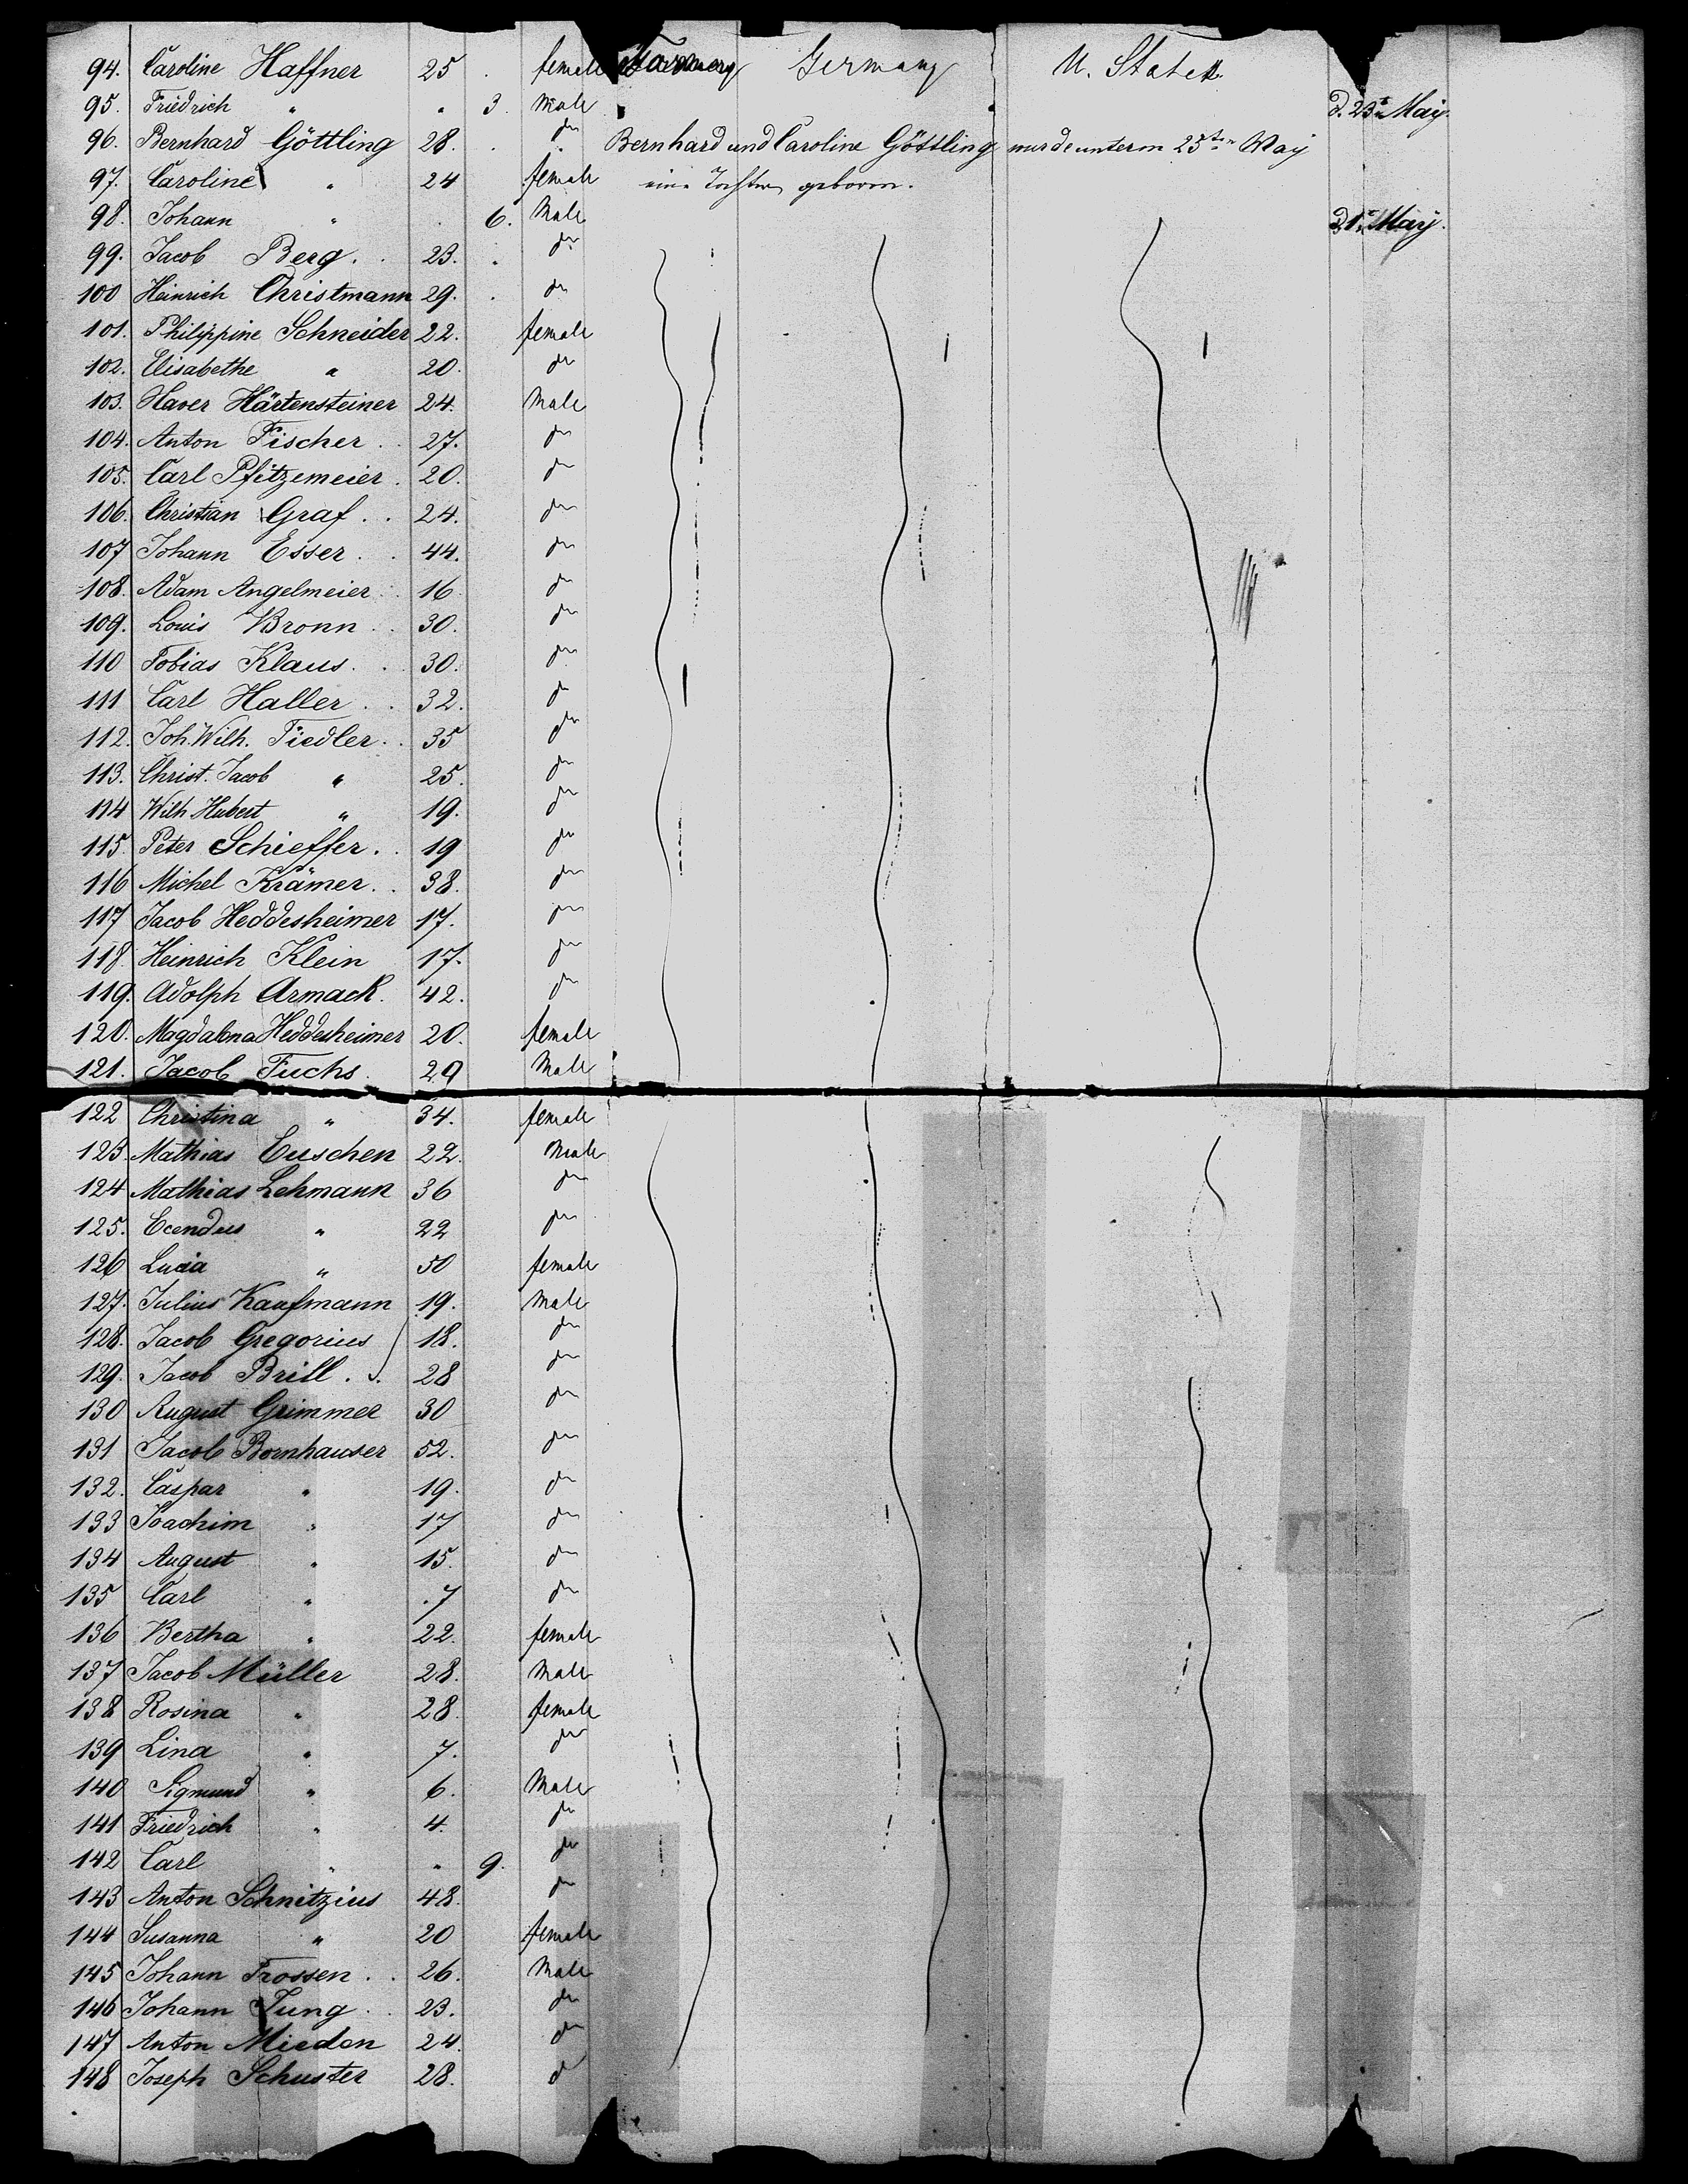 94. Caroline Haffner 25 . female Farmers Germany U. States
95. Friedrich " " 3. Male d. 23t May.
96. Bernhard Göttling 28. . do Bernhard und Caroline Göttling wurde unterm 25ten May
97. Caroline " 24 female eine Tochter geboren.
98. Johann " . 6. Male d. 1t May.
99. Jacob Berg . . 23. . do
100 Heinrich Christmann 29. . do
101. Philippine Schneider 22. female
102. Elisabethe " 20. do
103. Xaver Härtensteiner 24. Male
104. Anton Fischer . . 27. do
105. Carl Pfitzemeier . 20. do
106. Christian Graf . . 24. do
107 Johann Esser . . 44. do
108. Adam Angelmeier . 16 do
109. Louis Bronn . . 30. do
110 Tobias Klaus . . 30. do
111 Carl Haller . . 32. do
112. Joh. Wilh. Fiedler . . 35 do
113. Christ. Jacob " 25. do
114 Wilh Hubert " 19. do
115. Peter Schieffer . . 19 do
116 Michel Krämer . . 38. do
117 Jacob Heddesheimer 17. do
118. Heinrich Klein 17. do
119. Adolph Armack . 42. do
120. Magdalena Heddesheimer 20. female
121. Jacob Fuchs . 29 Male
122 Christina " 34. female
123. Mathias Euschen 22. Male
124 Mathias Lehmann 36 do
125. " 22 do
126 Lucia " 50 female
127. Julius Kaufmann 19. Male
128. Jacob Gregorius 18. do
129. Jacob Brill . . 28 do
130 August Grimmer 30 do
131 Jacob Bornhauser 52. do
132. Caspar " 19. do
133 Joachim " 17 do
134 August " 15. do
135 Carl " . 7 do
136 Bertha " 22. female
137 Jacob Müller 28. Male
138 Rosina " 28. female
139 Lina " 7. do
140 Sigmund " 6. Male
141 Friedrich " 4. do
142 Carl " " 9. do
143 Anton Schnitzius 48. do
144 Susanna " 20 female
145 Johann Frossen . . 26. Male
146 Johann Jung . . 23. do
147 Anton Mieden 24. do
148 Joseph Schuster 28. d